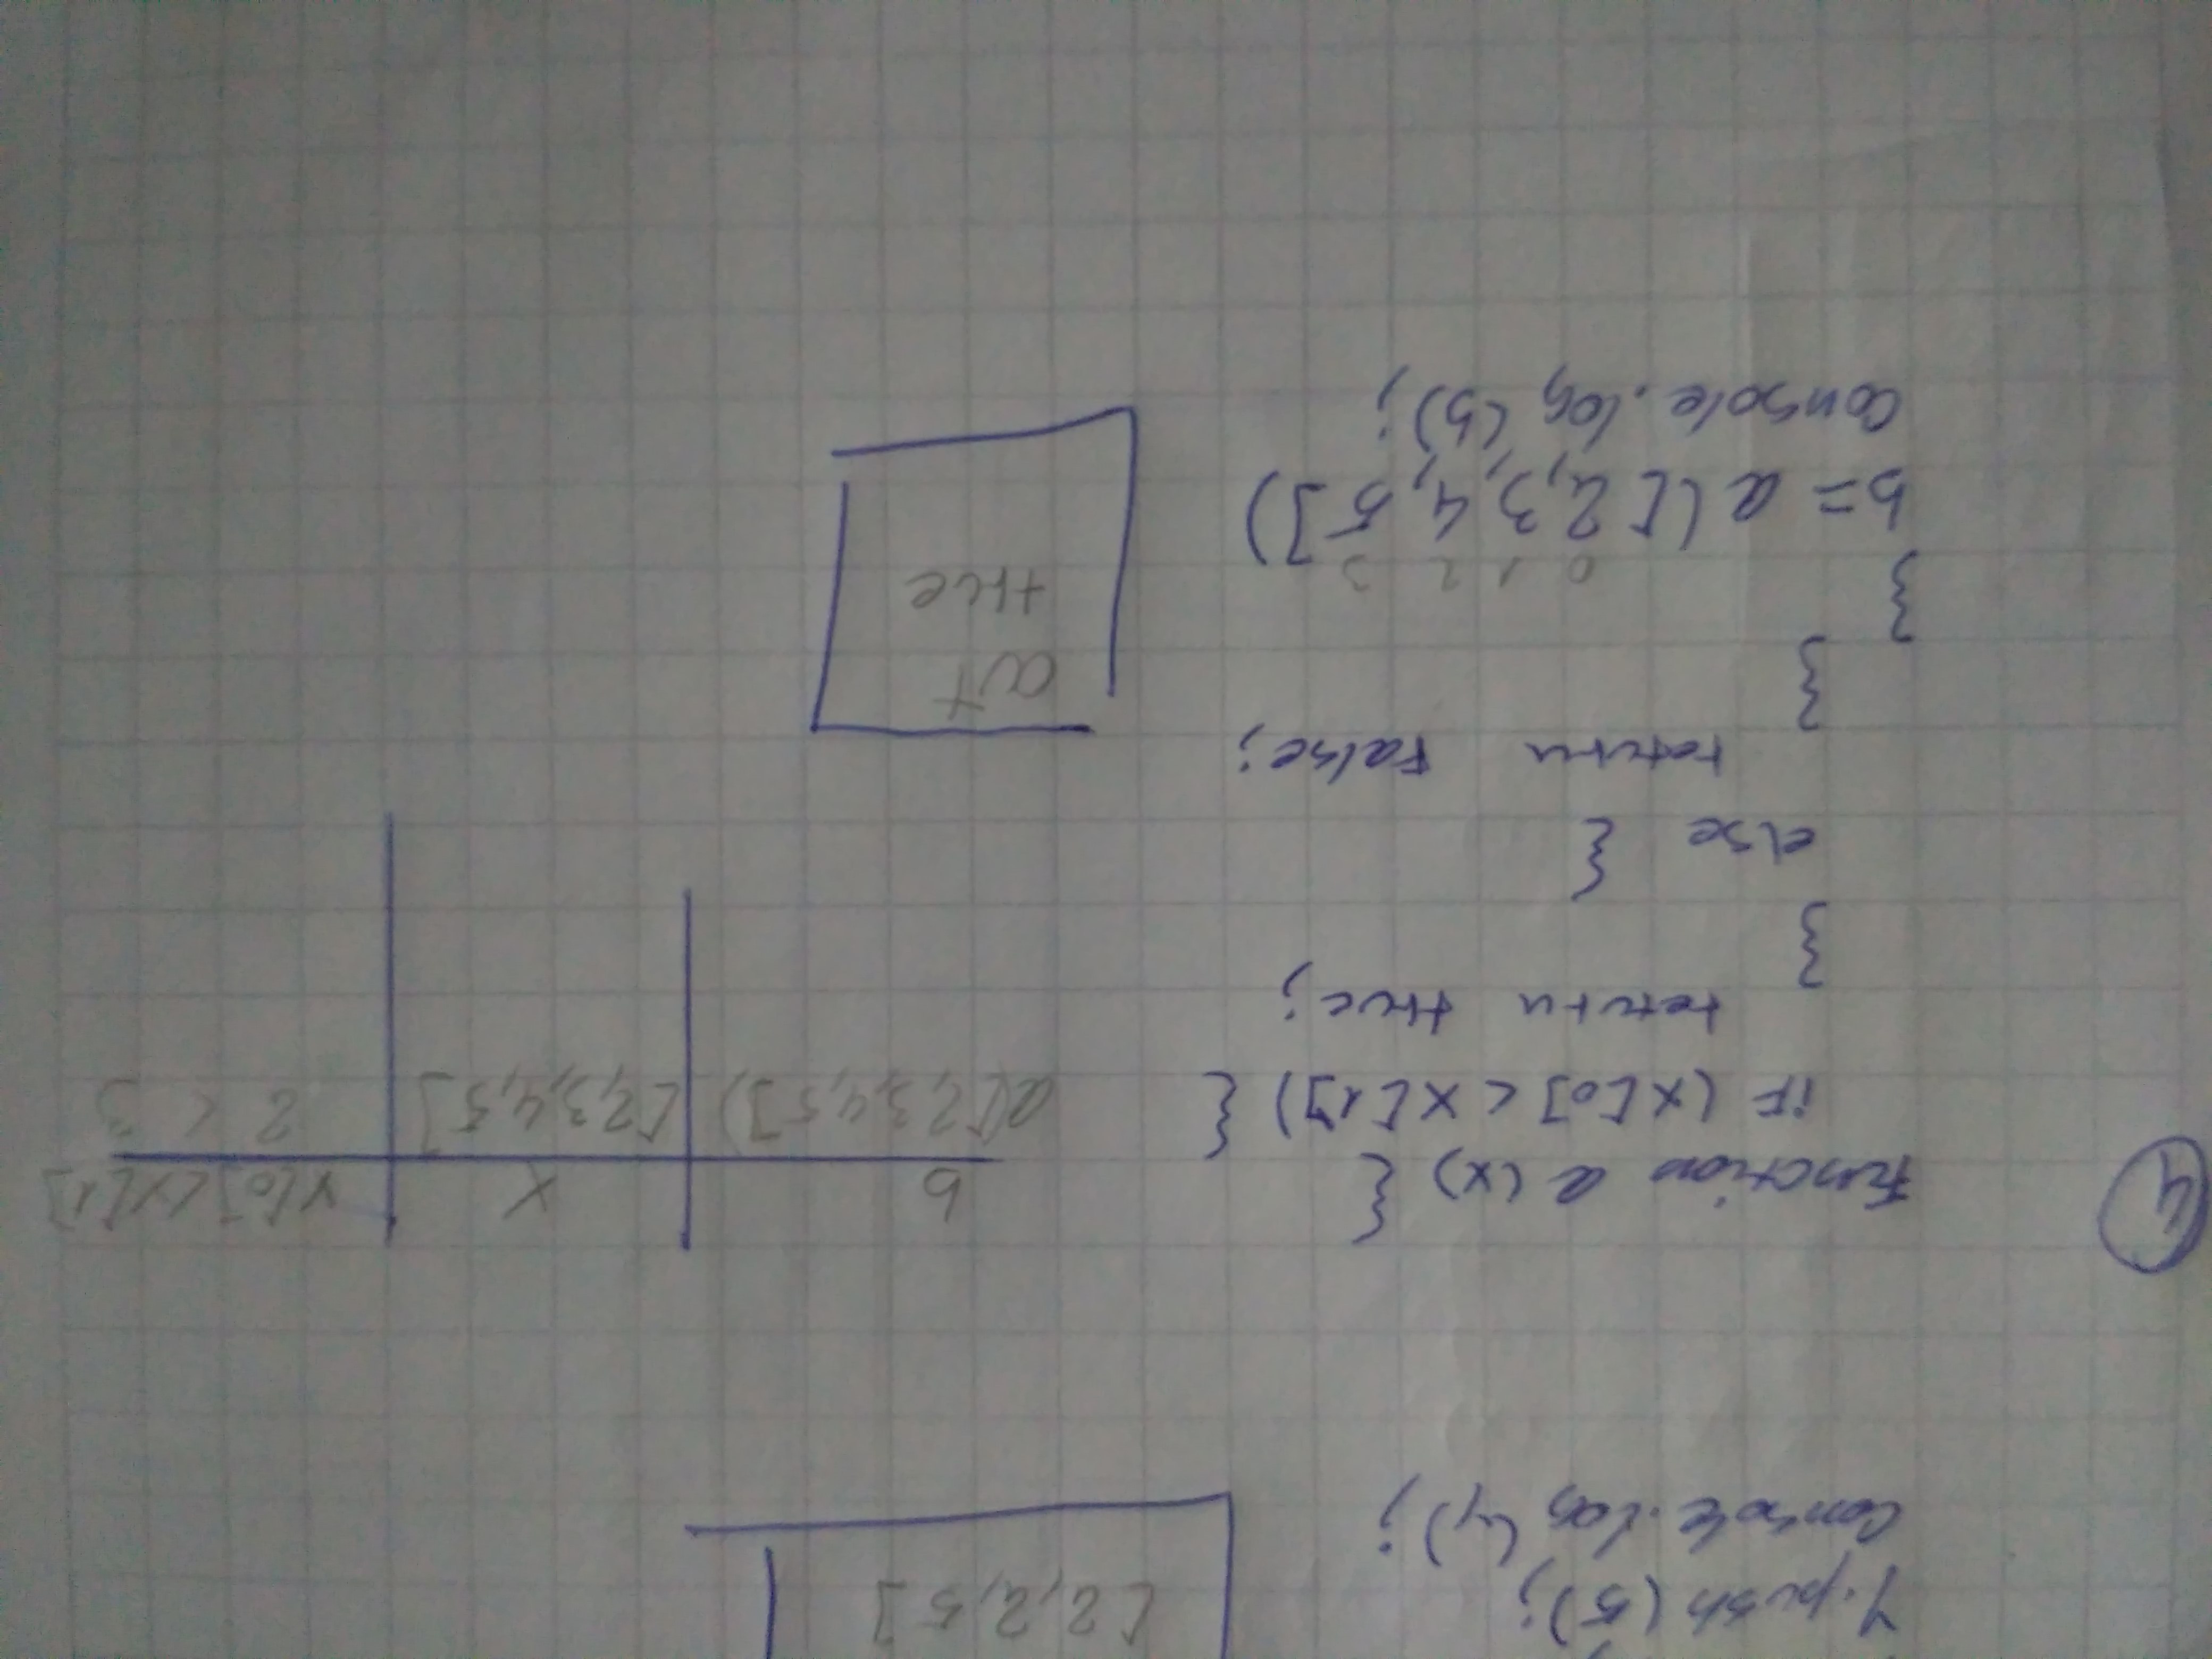 [2,2,5]
y.push(5);
console.log(y);
4
function a(x) {
if (x[0] < x[1]) {
return true;
}
else {
return false;
}
}
0 1 2 3
b = a([2,3,4,5])
console.log(b);
b
x
x[0]<x[1]
a([2,3,4,5])
[2,3,4,5]
2 < 3
out
true